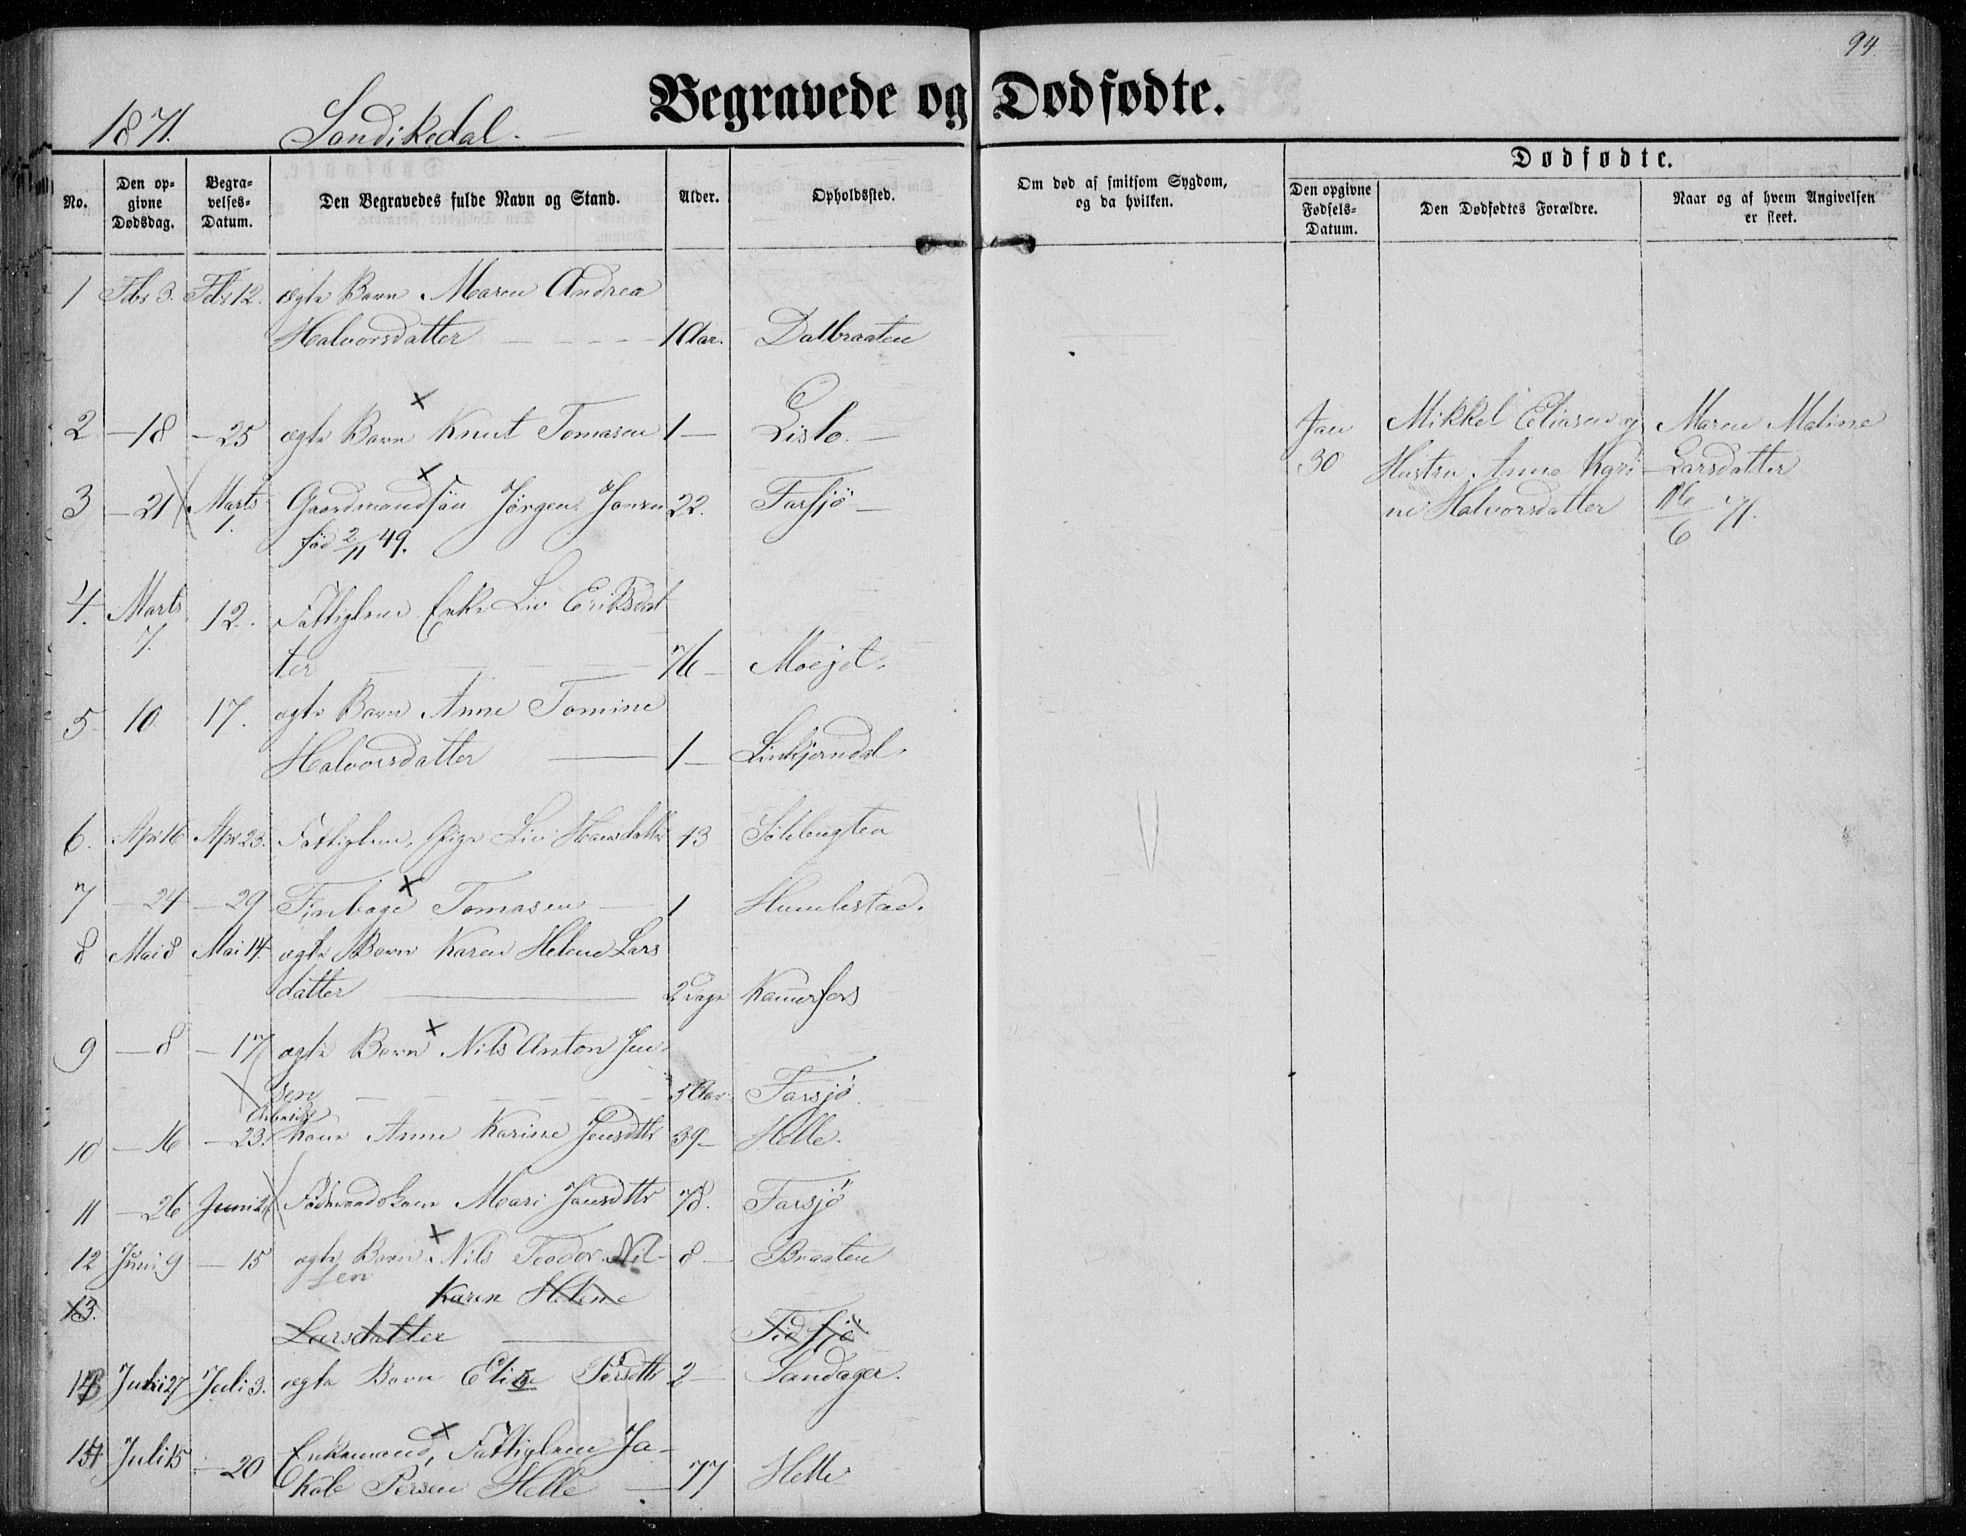 94.
Begravede og Dødfødte.
1871. Sandikedal.
No.
Den op-
givne
Dødsdag.
Begra-
velses-
Datum.
Den Begravedes fulde Navn og Stand.
Alder.
Opholdssted.
Om død af smitsom Sygdom,
og da hvilken.
Dødfødte.
Den opgivne
Fødsels-
Datum.
Den Dødfødtes Forældre.
Naar og af hvem Angivelsen
er skeet.
1 Febr 3. Febr 12. ægte Barn Maren Andrea
Halvorsdatter 1 Aar. Dalbraaten
2 18 25 ægte Barn Knut Tomasen 1 Lislo.
3 21 Marts 1. Gaardmandssøn Jørgen Jonsen 22. Farsjö
fød 2/11 49.
4. Marts 7. 12. Fattiglem Enke Liv Eriksdat
ter 76 Moejd.
5 10 17. ægte Barn Anne Tomine
Halvorsdatter 1
6. Apr 16 Apr 23. Fattiglem, Pige Liv Hansdatter 43
7 24 29 Tomasen 1 Humlestad.
8 Mai 8 Mai 14. ægte Barn Karen Helene Lars
datter 2 Dage Kamerfos
9 8 17 ægte Barn Nils Anton Jen-
sen 3 Aar Farsjö.
10 16 23. Arbeids
kone Anne Karine Jensdtr 39 Helle.
11 26 Juni Födmandskone Mari Jansdtr 78. Farsjö
12 Juni 9 15 ægte Barn Nils Teodor Nil-
sen 8 Braaten
13. Karen Helene
Larsdatter
13 Juni 27 Juli 3. ægte Barn Elise Persdtr 2 Sandager.
14 Juli 15 20 Enkemand, Fattiglem Ja-
kob Persen Helle 77 Helle
Jan
30
Mikkel Eliasen og
Hustru Anne Kari-
ne Halvorsdatter
Maren Maline
Larsdatter
16/6 71.